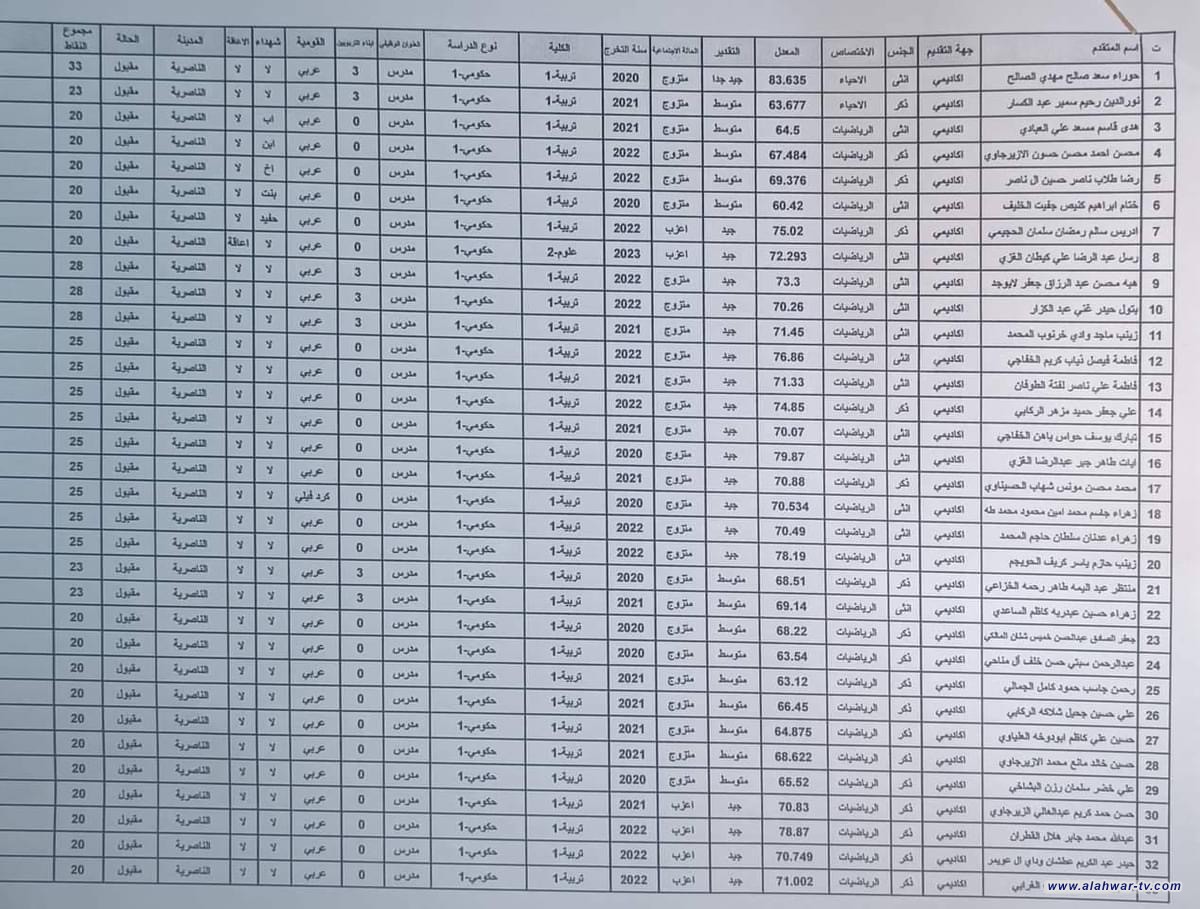 ت اسم المتقدم جهة التقديم الجنس الاختصاص المعدل التقدير الحالة الاجتماعية سنة التخرج الكلية نوع الدراسة العنوان الوظيفي ابناء التربويين القومية شهداء الاعاقة المدينة الحالة مجموع النقاط
1 حوراء سعد صالح مهدي الصالح اكاديمي انثى الاحياء 83.635 جيد جدا متزوج 2020 تربية-1 حكومي-1 مدرس 3 عربي لا لا الناصرية مقبول 33
2 نورالدين رحيم سمير عبد الكسار اكاديمي ذكر الاحياء 63.677 متوسط متزوج 2021 تربية-1 حكومي-1 مدرس 3 عربي لا لا الناصرية مقبول 23
3 هدى قاسم مسعد علي العبادي اكاديمي انثى الرياضيات 64.5 متوسط متزوج 2021 تربية-1 حكومي-1 مدرس 0 عربي اب لا الناصرية مقبول 20
4 محسن احمد محسن حسون الازيرجاوي اكاديمي ذكر الرياضيات 67.484 متوسط متزوج 2022 تربية-1 حكومي-1 مدرس 0 عربي ابن لا الناصرية مقبول 20
5 رضا طلاب ناصر حسين ال ناصر اكاديمي ذكر الرياضيات 69.376 متوسط متزوج 2022 تربية-1 حكومي-1 مدرس 0 عربي اخ لا الناصرية مقبول 20
6 ختام ابراهيم كنيص جفيت الخليف اكاديمي انثى الرياضيات 60.42 متوسط متزوج 2020 تربية-1 حكومي-1 مدرس 0 عربي بنت لا الناصرية مقبول 20
7 ادريس سالم رمضان سلمان الحجيمي اكاديمي ذكر الرياضيات 75.02 جيد اعزب 2022 تربية-1 حكومي-1 مدرس 0 عربي حفيد لا الناصرية مقبول 20
8 رسل عبد الرضا علي كيطان الغزي اكاديمي انثى الرياضيات 72.293 جيد اعزب 2023 علوم-2 حكومي-1 مدرس 0 عربي لا اعاقة الناصرية مقبول 20
9 هبه محسن عبد الرزاق جعفر لايوجد اكاديمي انثى الرياضيات 73.3 جيد متزوج 2022 تربية-1 حكومي-1 مدرس 3 عربي لا لا الناصرية مقبول 28
10 بتول حيدر غني عبد الكزار اكاديمي انثى الرياضيات 70.26 جيد متزوج 2022 تربية-1 حكومي-1 مدرس 3 عربي لا لا الناصرية مقبول 28
11 زينب ماجد وادي خرنوب المحمد اكاديمي انثى الرياضيات 71.45 جيد متزوج 2021 تربية-1 حكومي-1 مدرس 3 عربي لا لا الناصرية مقبول 28
12 فاطمة فيصل ذياب كريم الخفاجي اكاديمي انثى الرياضيات 76.86 جيد متزوج 2022 تربية-1 حكومي-1 مدرس 0 عربي لا لا الناصرية مقبول 25
13 فاطمة علي ناصر لفتة الطوفان اكاديمي انثى الرياضيات 71.33 جيد متزوج 2021 تربية-1 حكومي-1 مدرس 0 عربي لا لا الناصرية مقبول 25
14 علي جعفر حميد مزهر الركابي اكاديمي ذكر الرياضيات 74.85 جيد متزوج 2022 تربية-1 حكومي-1 مدرس 0 عربي لا لا الناصرية مقبول 25
15 تبارك يوسف حواس ياهن الخفاجي اكاديمي انثى الرياضيات 70.07 جيد متزوج 2021 تربية-1 حكومي-1 مدرس 0 عربي لا لا الناصرية مقبول 25
16 ايات طاهر جبر عبدالرضا الغزي اكاديمي انثى الرياضيات 79.87 جيد متزوج 2020 تربية-1 حكومي-1 مدرس 0 عربي لا لا الناصرية مقبول 25
17 محمد محسن مونس شهاب الحسيناوي اكاديمي ذكر الرياضيات 70.88 جيد متزوج 2021 تربية-1 حكومي-1 مدرس 0 عربي لا لا الناصرية مقبول 25
18 زهراء جاسم محمد امين محمود محمد طه اكاديمي انثى الرياضيات 70.534 جيد متزوج 2020 تربية-1 حكومي-1 مدرس 0 كرد فيلي لا لا الناصرية مقبول 25
19 زهراء عدنان سلطان حاجم المحمد اكاديمي انثى الرياضيات 70.49 جيد متزوج 2022 تربية-1 حكومي-1 مدرس 0 عربي لا لا الناصرية مقبول 25
20 زينب حازم ياسر كريف الحويجم اكاديمي انثى الرياضيات 78.19 جيد متزوج 2022 تربية-1 حكومي-1 مدرس 0 عربي لا لا الناصرية مقبول 25
21 منتظر عبد اليمه طاهر رحمه الخزاعي اكاديمي ذكر الرياضيات 68.51 متوسط متزوج 2020 تربية-1 حكومي-1 مدرس 3 عربي لا لا الناصرية مقبول 23
22 زهراء حسين عبدربه كاظم الساعدي اكاديمي انثى الرياضيات 69.14 متوسط متزوج 2021 تربية-1 حكومي-1 مدرس 3 عربي لا لا الناصرية مقبول 23
23 جعفر الصادق عبدالحسن خميس شنان المالكي اكاديمي ذكر الرياضيات 68.22 متوسط متزوج 2020 تربية-1 حكومي-1 مدرس 0 عربي لا لا الناصرية مقبول 20
24 عبدالرحمن سبتي حسن خلف آل مناحي اكاديمي ذكر الرياضيات 63.54 متوسط متزوج 2020 تربية-1 حكومي-1 مدرس 0 عربي لا لا الناصرية مقبول 20
25 رحمن جاسب حمود كامل الجمالي اكاديمي ذكر الرياضيات 63.12 متوسط متزوج 2021 تربية-1 حكومي-1 مدرس 0 عربي لا لا الناصرية مقبول 20
26 علي حسين جحيل شلاكه الركابي اكاديمي ذكر الرياضيات 66.45 متوسط متزوج 2021 تربية-1 حكومي-1 مدرس 0 عربي لا لا الناصرية مقبول 20
27 حسين علي كاظم ابودوخه الطياوي اكاديمي ذكر الرياضيات 64.875 متوسط متزوج 2021 تربية-1 حكومي-1 مدرس 0 عربي لا لا الناصرية مقبول 20
28 حسين خالد مانع محمد الازيرجاوي اكاديمي ذكر الرياضيات 68.622 متوسط متزوج 2021 تربية-1 حكومي-1 مدرس 0 عربي لا لا الناصرية مقبول 20
29 علي خضر سلمان رزن البشاخي اكاديمي ذكر الرياضيات 65.52 متوسط متزوج 2020 تربية-1 حكومي-1 مدرس 0 عربي لا لا الناصرية مقبول 20
30 حسن حمد كريم عبدالعالي الزيرجاوي اكاديمي ذكر الرياضيات 70.83 جيد اعزب 2021 تربية-1 حكومي-1 مدرس 0 عربي لا لا الناصرية مقبول 20
31 عبدالله محمد جابر هلال القطران اكاديمي ذكر الرياضيات 78.87 جيد اعزب 2022 تربية-1 حكومي-1 مدرس 0 عربي لا لا الناصرية مقبول 20
32 حيدر عبد الكريم عطشان وداي ال عويمر اكاديمي ذكر الرياضيات 70.749 جيد اعزب 2022 تربية-1 حكومي-1 مدرس 0 عربي لا لا الناصرية مقبول 20
الغرابي اكاديمي ذكر الرياضيات 71.002 جيد اعزب 2022 تربية-1 حكومي-1 مدرس 0 عربي لا لا الناصرية مقبول 20
www.alahwar-tv.com